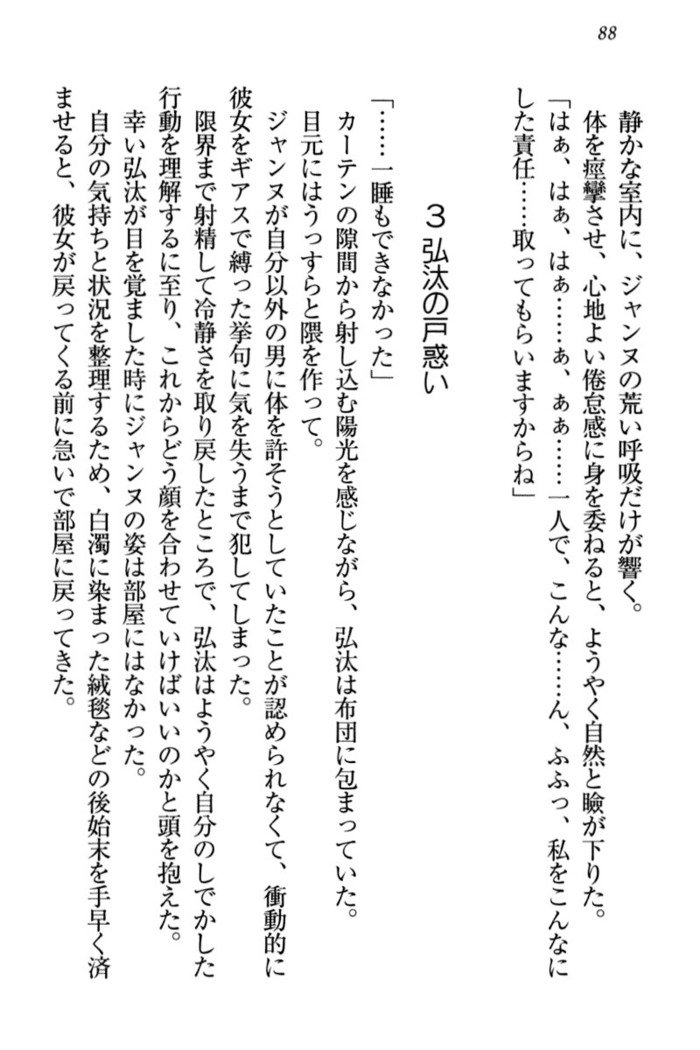 88
静かな室内に、ジャンヌの荒い呼吸だけが響く。
体を痙攣させ、心地よい倦怠感に身を委ねると、ようやく自然と瞼が下りた。
「はぁ、はぁ、はぁ……ぁ、ぁぁ……一人で、こんな……ん、ふふっ、私をこんなに
した責任……取ってもらいますからね」
3 弘汰の戸惑い
「……一睡もできなかった」
カーテンの隙間から射し込む陽光を感じながら、弘汰は布団に包まっていた。
目元にはうっすらと隈を作って。
ジャンヌが自分以外の男に体を許そうとしていたことが認められなくて、衝動的に
彼女をギアスで縛った挙句に気を失うまで犯してしまった。
限界まで射精して冷静さを取り戻したところで、弘汰はようやく自分のしでかした
行動を理解するに至り、これからどう顔を合わせていけばいいのかと頭を抱えた。
幸い弘汰が目を覚ました時にジャンヌの姿は部屋にはなかった。
自分の気持ちと状況を整理するため、白濁に染まった絨毯などの後始末を手早く済
ませると、彼女が戻ってくる前に急いで部屋に戻ってきた。